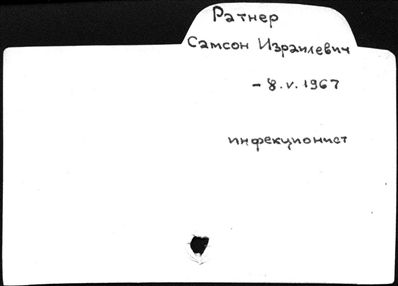 Ратнер
Самсон Израилевич
- 8.V.1967
инфекционист